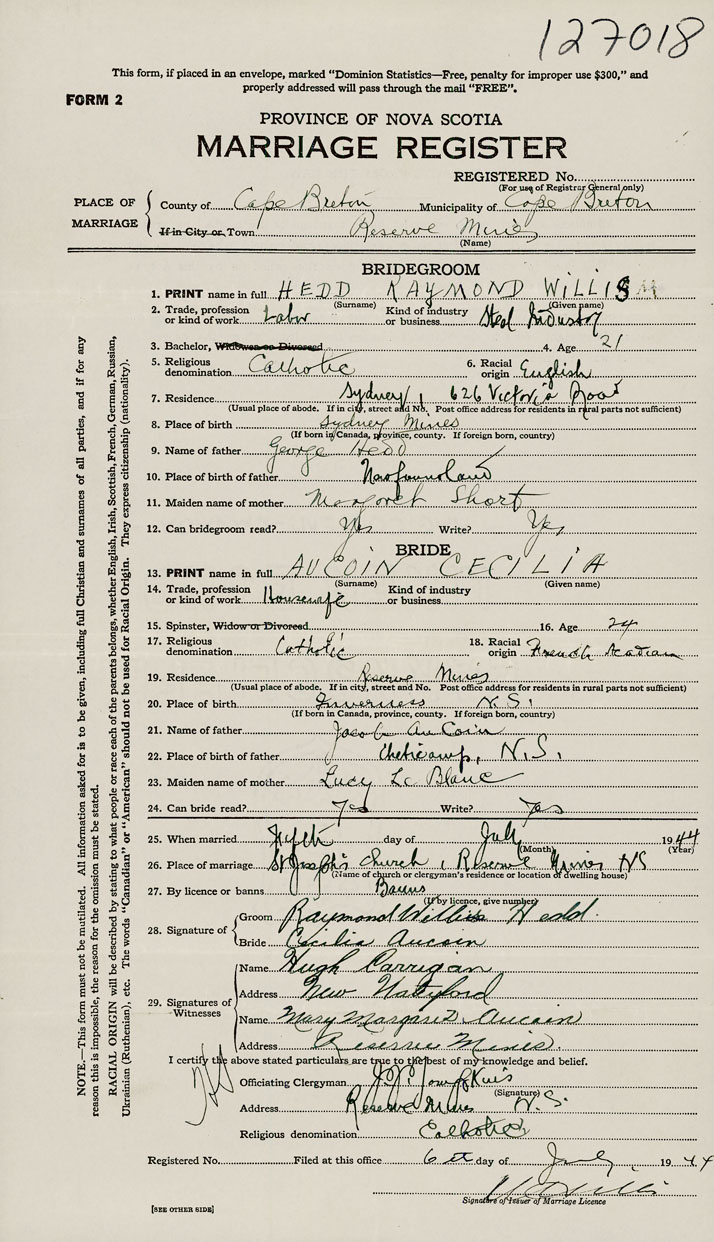 127018
This form, if placed in an envelope, marked "Dominion Statistics—Free, penalty for improper use $300," and
properly addressed will pass through the mail "FREE".
FORM 2
PROVINCE OF NOVA SCOTIA
MARRIAGE REGISTER
REGISTERED No.
(For use of Registrar General only)
PLACE OF MARRIAGE
County of Cape Breton Municipality of Cape Breton
If in City or Town Reserve Mines
(Name)
BRIDEGROOM
1. PRINT name in full HEDD RAYMOND WILLIS
(Surname) (Given name)
2. Trade, profession or kind of work Labor Kind of industry or business Steel Industry
3. Bachelor, Widower or Divorced 4. Age 21
5. Religious denomination Catholic 6. Racial origin English
7. Residence Sydney, 626 Victoria Road
(Usual place of abode. If in city, street and No. Post office address for residents in rural parts not sufficient)
8. Place of birth Sydney Mines
(If born in Canada, province, county. If foreign born, country)
9. Name of father George Hedd
10. Place of birth of father Newfoundland
11. Maiden name of mother Margaret Short
12. Can bridegroom read? Yes Write? Yes
BRIDE
13. PRINT name in full AUCOIN CECILIA
(Surname) (Given name)
14. Trade, profession or kind of work Housewife Kind of industry or business
15. Spinster, Widow or Divorced 16. Age 24
17. Religious denomination Catholic 18. Racial origin French Acadian
19. Residence Reserve Mines
(Usual place of abode. If in city, street and No. Post office address for residents in rural parts not sufficient)
20. Place of birth Inverness N.S.
(If born in Canada, province, county. If foreign born, country)
21. Name of father Jacob AuCoin
22. Place of birth of father Cheticamp, N.S.
23. Maiden name of mother Lucy Le Blanc
24. Can bride read? Yes Write? Yes
25. When married Fifth day of July 1944
(Month) (Year)
26. Place of marriage St Joseph's Church, Reserve Mines NS
(Name of church or clergyman's residence or location of dwelling house)
27. By licence or banns Banns
(If by licence, give number)
28. Signature of
Groom Raymond Willis Hedd.
Bride Cecilia Aucoin
29. Signatures of Witnesses
Name Hugh Carrigan
Address New Waterford
Name Mary Margaret Aucoin
Address Reserve Mines.
I certify the above stated particulars are true to the best of my knowledge and belief.
Officiating Clergyman
(Signature)
Address Reserve Mines N.S.
Religious denomination Catholic
Registered No. Filed at this office 6th day of July 1944
Signature of Issuer of Marriage Licence
[SEE OTHER SIDE]
NOTE.—This form must not be mutilated. All information asked for is to be given, including full Christian and surnames of all parties, and if for any
reason this is impossible, the reason for the omission must be stated.
RACIAL ORIGIN will be described by stating to what people or race each of the parents belongs, whether English, Irish, Scottish, French, German, Russian,
Ukrainian (Ruthenian), etc. The words "Canadian" or "American" should not be used for Racial Origin. They express citizenship (nationality).